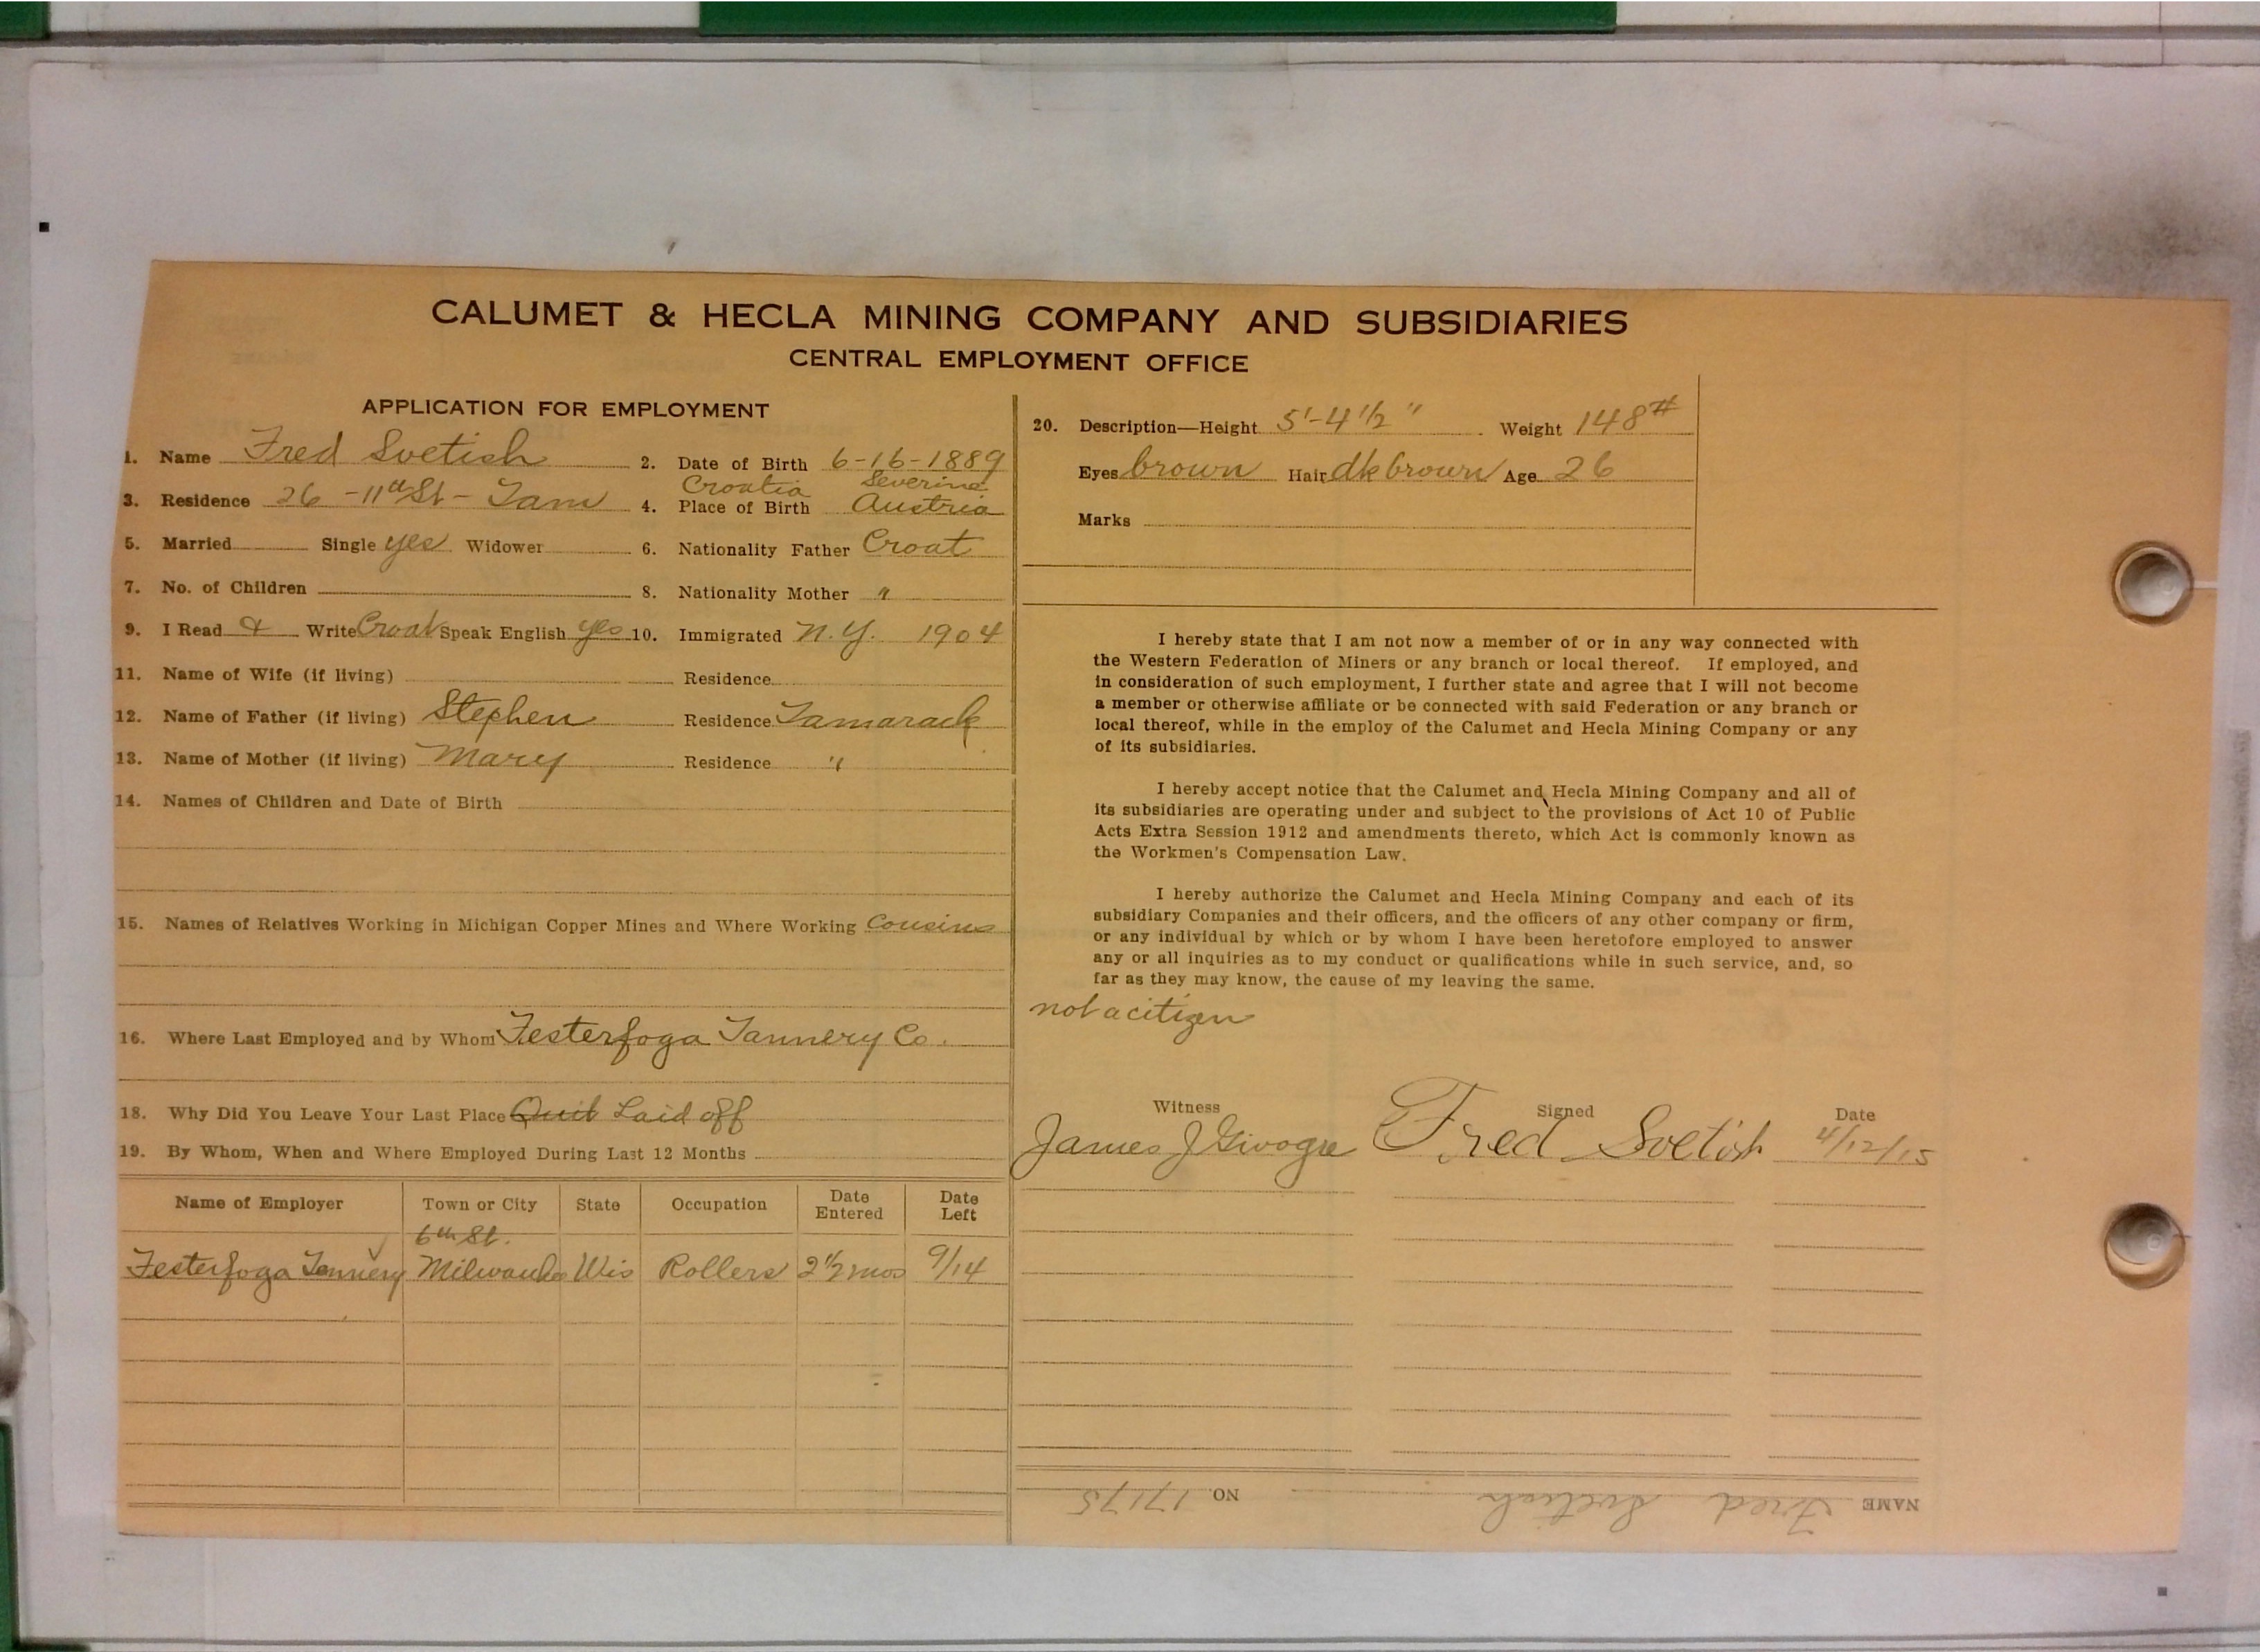 CALUMET & HECLA MINING COMPANY AND SUBSIDIARIES
CENTRAL EMPLOYMENT OFFICE
APPLICATION FOR EMPLOYMENT
1. Name Fred Svetish 2. Date of Birth 6-16-1889
Croatia Severine
3. Residence 26 - 11th St - Tam 4. Place of Birth Austria
5. Married Single yes Widower 6. Nationality Father Croat
7. No. of Children 8. Nationality Mother "
9. I Read & Write Croat Speak English yes 10. Immigrated N.Y. 1904
11. Name of Wife (if living) Residence
12. Name of Father (if living) Stephen Residence Tamarack
13. Name of Mother (if living) Mary Residence "
14. Names of Children and Date of Birth
15. Names of Relatives Working in Michigan Copper Mines and Where Working Cousins
16. Where Last Employed and by Whom Festerfoga Tannery Co.
18. Why Did You Leave Your Last Place Quit Laid off
19. By Whom, When and Where Employed During Last 12 Months
Name of Employer Town or City State Occupation Date Entered Date Left
6th St.
Festerfoga Tannery Milwaukee Wis Rollers 2 1/2 mos 9/14
20. Description—Height 5'-4 1/2" Weight 148#
Eyes brown Hair dk brown Age 26
Marks
I hereby state that I am not now a member of or in any way connected with
the Western Federation of Miners or any branch or local thereof. If employed, and
in consideration of such employment, I further state and agree that I will not become
a member or otherwise affiliate or be connected with said Federation or any branch or
local thereof, while in the employ of the Calumet and Hecla Mining Company or any
of its subsidiaries.
I hereby accept notice that the Calumet and Hecla Mining Company and all of
its subsidiaries are operating under and subject to the provisions of Act 10 of Public
Acts Extra Session 1912 and amendments thereto, which Act is commonly known as
the Workmen's Compensation Law.
I hereby authorize the Calumet and Hecla Mining Company and each of its
subsidiary Companies and their officers, and the officers of any other company or firm,
or any individual by which or by whom I have been heretofore employed to answer
any or all inquiries as to my conduct or qualifications while in such service, and, so
far as they may know, the cause of my leaving the same.
not a citizen
Witness Signed Date
James J Givogre Fred Svetish 4/12/15
NAME Fred Svetish NO. 17175